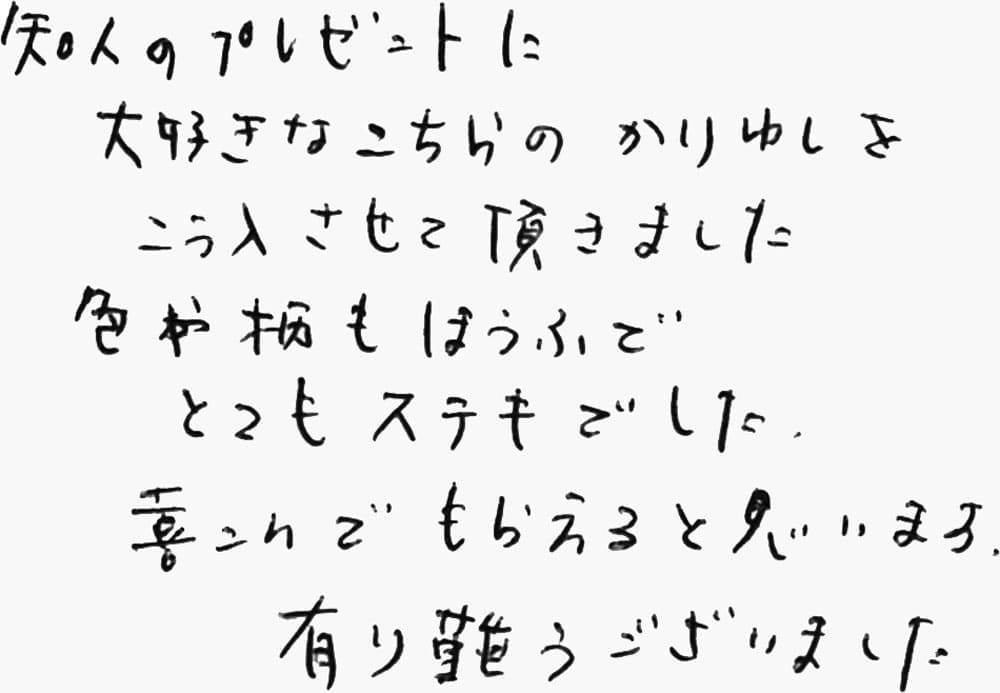 知人のプレゼントに
大好きなこちらのかりゆしを
こう入させて頂きました
色や柄もほうふで
とてもステキでした.
喜こんでもらえると思います.
有り難うございました